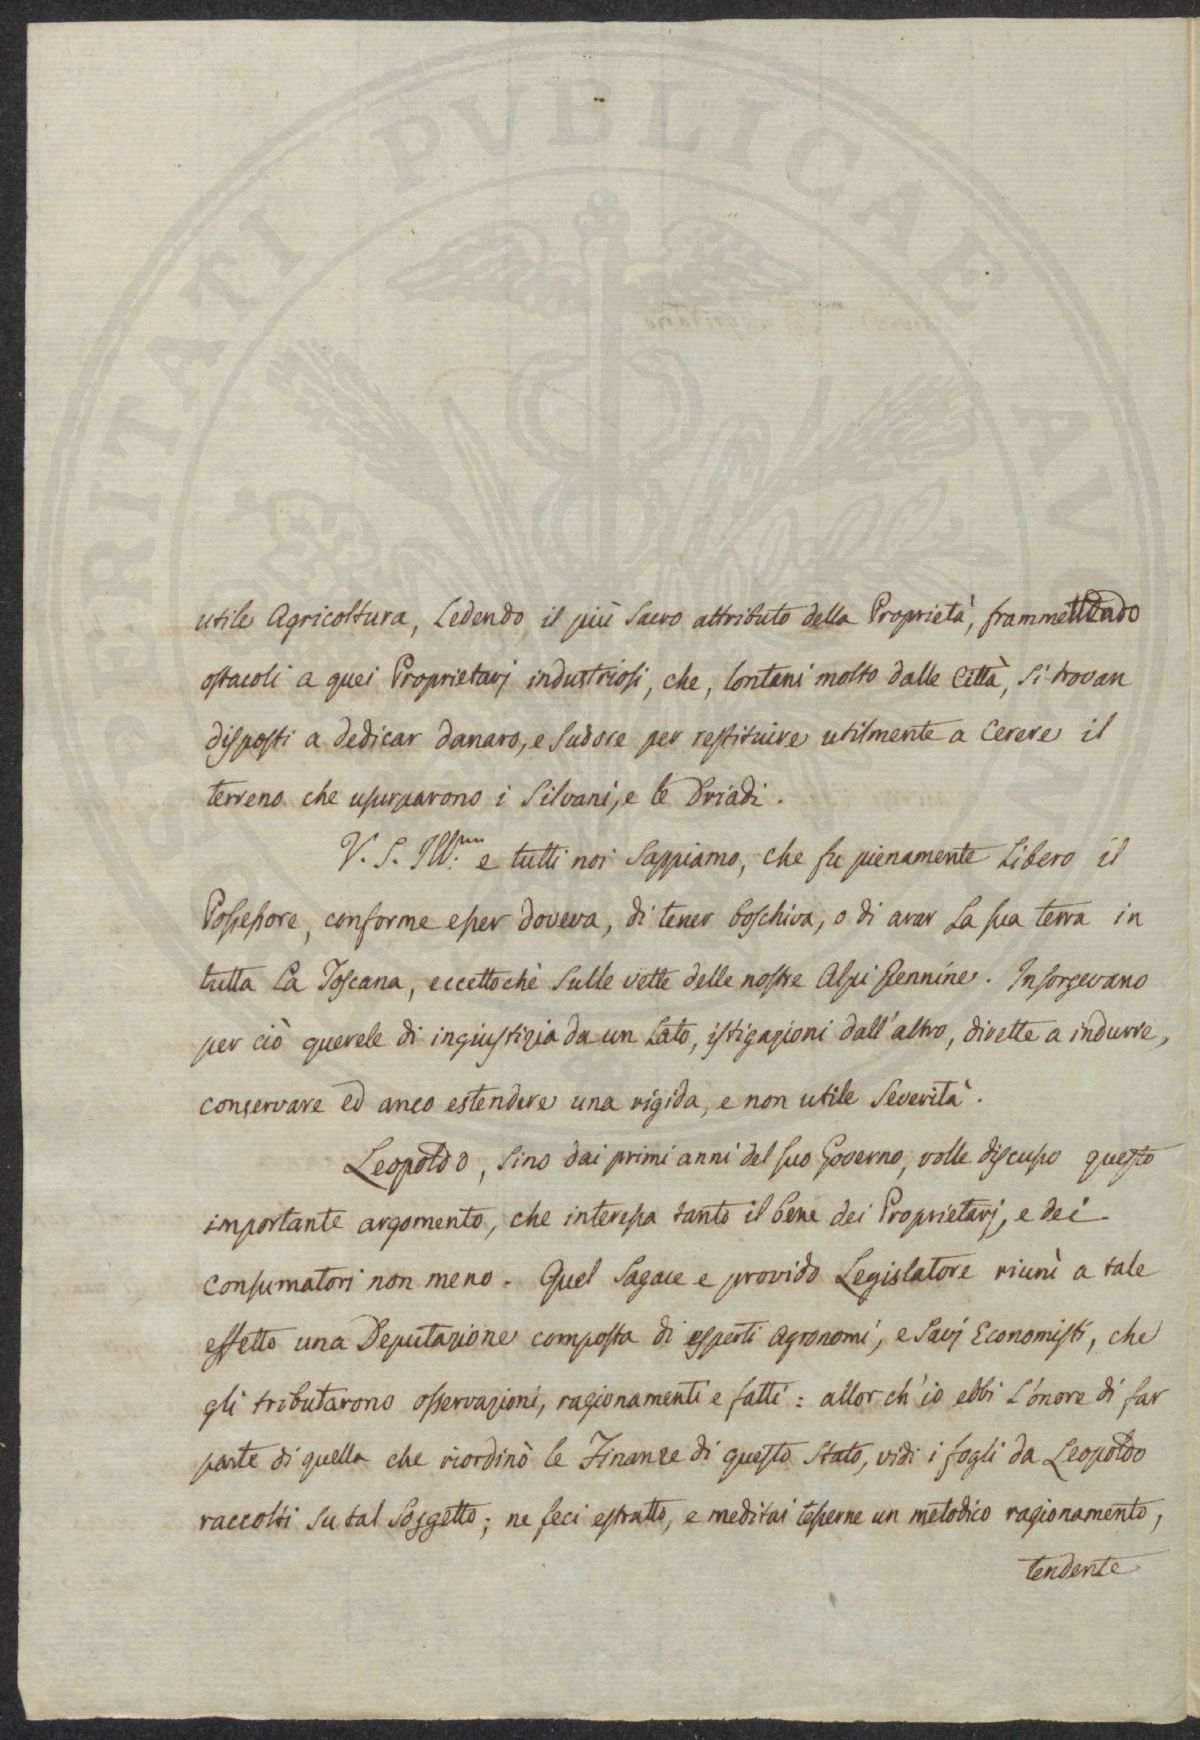 PROSPERITATI PVBLICAE AV
utile Agricoltura, Ledendo il più Sacro attributo della Proprietà, frammettendo
ostacoli a quei Proprietarj industriosi, che, lontani molto dalle Città, Si trovan
disposti a dedicar danaro, e Sudore per restituire utilmente a Cerere il
terreno che usurparono i Silvani, e le Driadi.
V. S. Ill:ma e tutti noi Sappiamo, che fu pienamente Libero il
Possessore, conforme esser doveva, di tener boschiva, o di arar La sua terra in
tutta La Toscana, eccettochè Sulle vette delle nostre Alpi Pennine. Insorgevano
per ciò querele di ingiustizia da un Lato, istigazioni dall'altro, dirette a indurre,
conservare ed anco estendere una rigida, e non utile Severità.
Leopoldo, Sino dai primi anni del suo Governo, volle discusso questo
importante argomento, che interessa tanto il bene dei Proprietarj, e dei
Consumatori non meno. Quel Sagace e provido Legislatore riunì a tale
effetto una Deputazione composta di esperti Agronomi, e Savj Economisti, che
gli tributarono osservazioni, ragionamenti e fatti: allor ch'io ebbi L'onore di far
parte di quella che riordinò le Finanze di questo Stato, vidi i fogli da Leopoldo
raccolti su tal Soggetto; ne feci estratto, e meditai tesserne un metodico ragionamento,
tendente